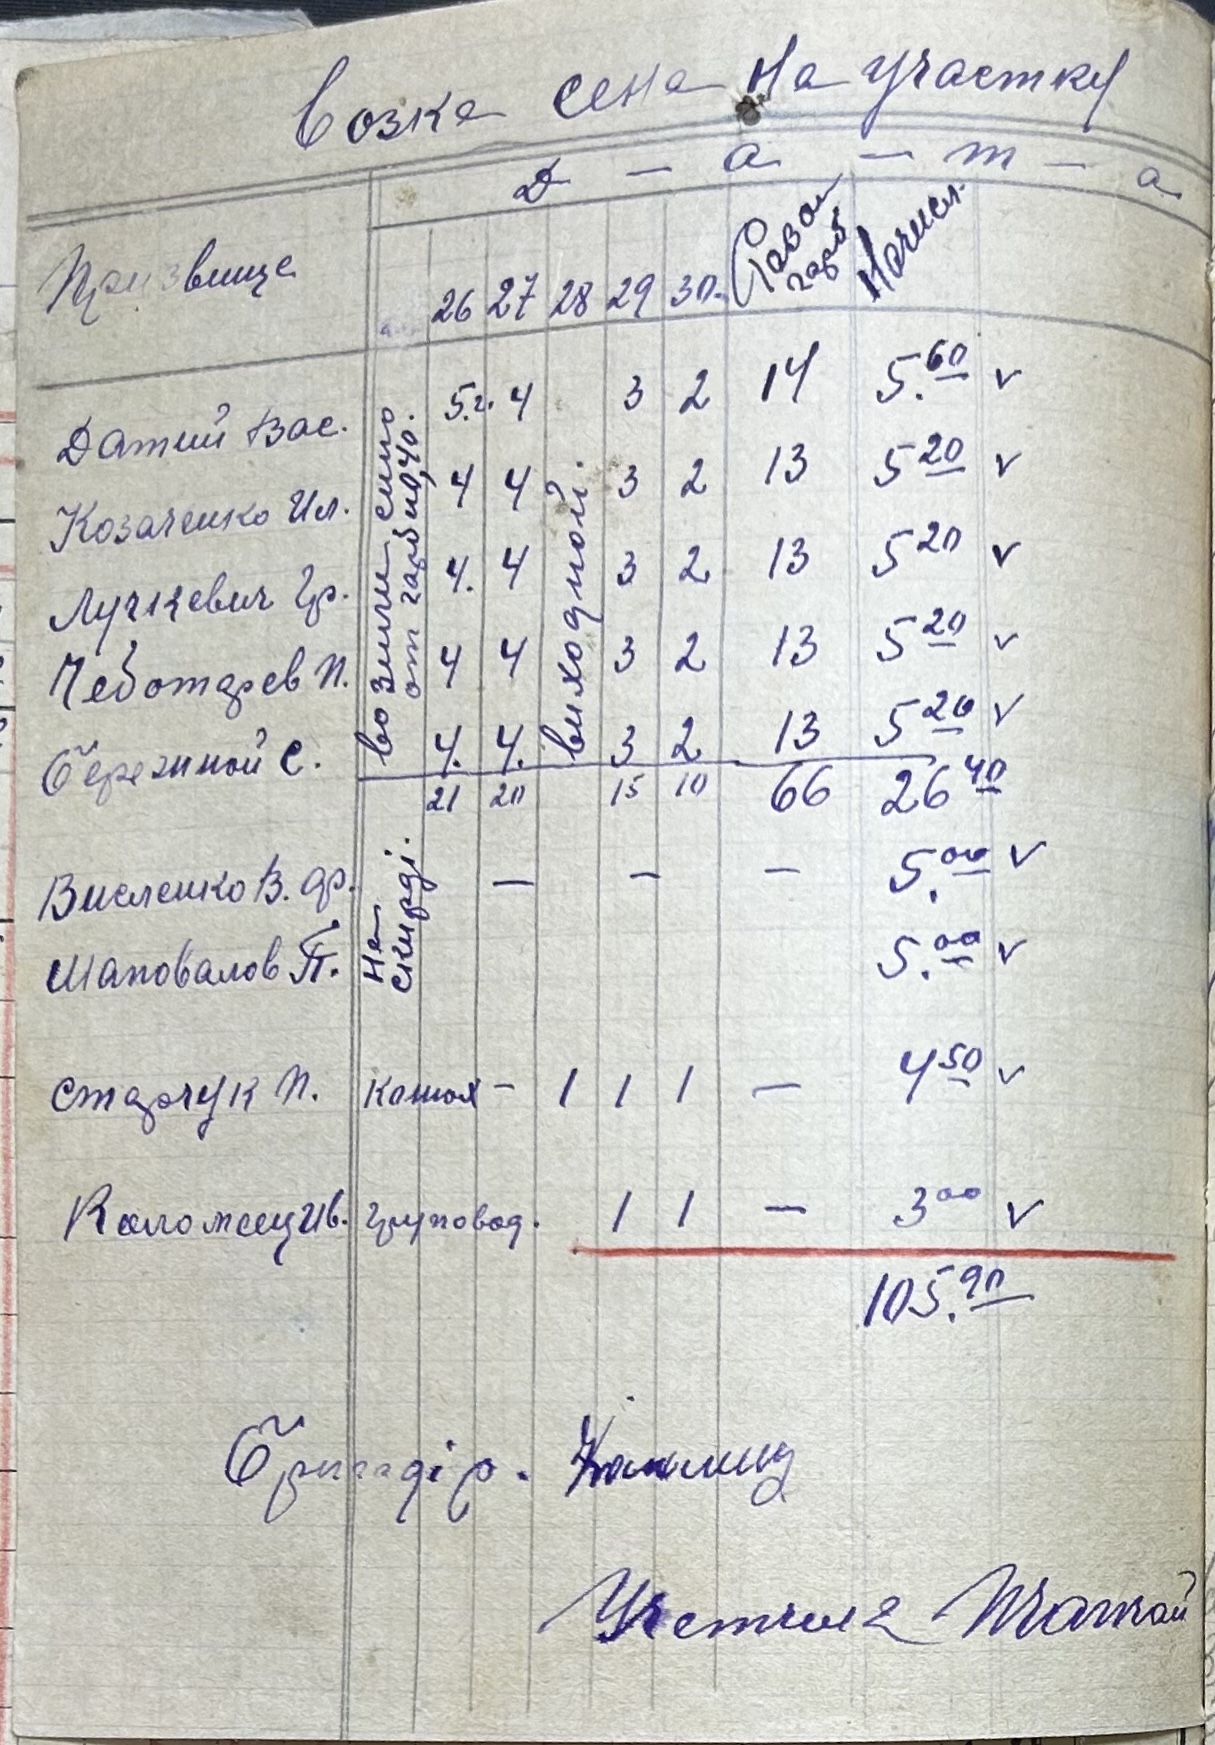 Возка сена на участку
Д - а - т - а
Призвище 26 27 28 29 30. Разом гарб Начисл.
возили сино от гарб по 0,40.
виходной.
Датий Вас. 5.г. 4 3 2 14 5.60 v
Козаченко Ил. 4 4 3 2 13 5 20 v
Лучкевич Гр. 4. 4 3 2 13 5 20 v
Чеботарев П. 4 4 3 2 13 5 20 v
Бережной С. 4. 4. 3 2 13 5 20 v
21 20 15 10 66 26 40
На скирді.
Висленко В. др. — — — 5.00 v
Шаповалов П. 5.00 v
Старчук П. - 1 1 1 — 4 50 v
Коломеец Ив. 1 1 — 3 00 v
105.90
Бригадір.
Учетчик